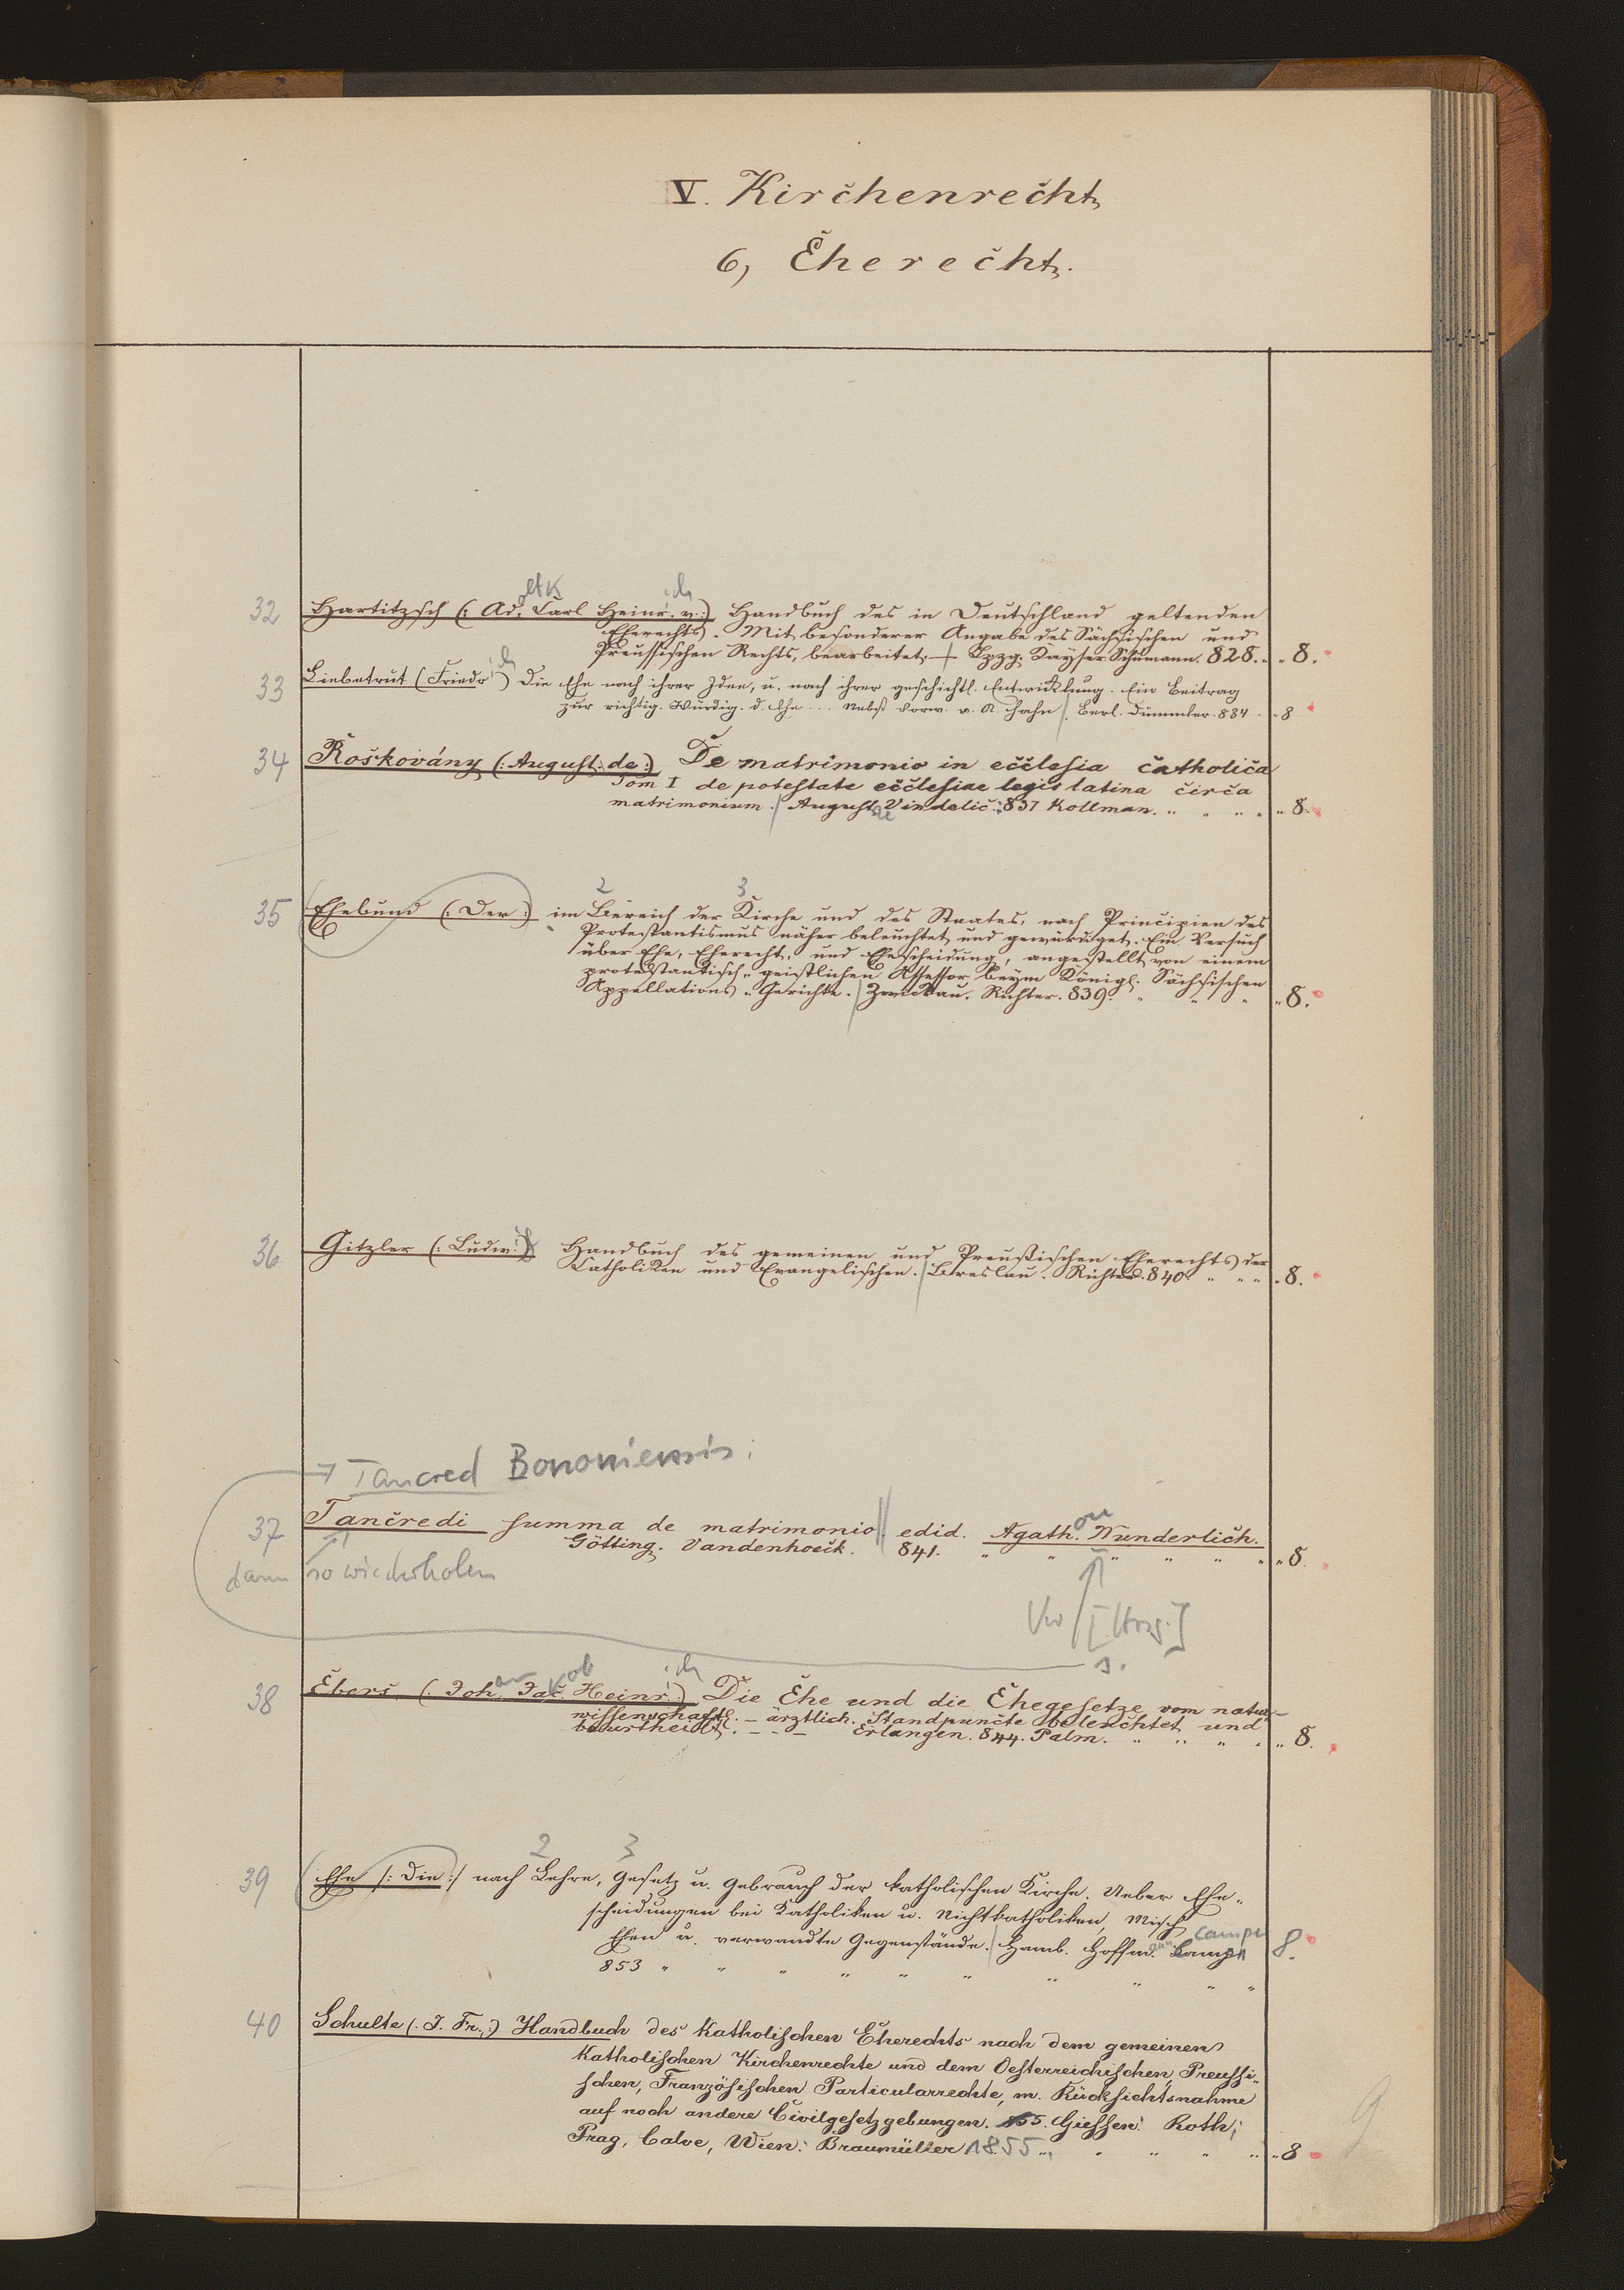 V. Kirchenrecht
6, Eherecht.
olf K ich
32 Hartitzsch (: Ad. Carl Heinr. v. :) Handbuch des in Deutschland geltenden
Eherechts. Mit besonderer Angabe des Sächsischen und
Preussischen Rechts, bearbeitet. Lpzg. Kayser Schumann. 828. „ 8.
ich
33 Liebetrut (Friedr) Die Ehe nach ihrer Idee, u. nach ihrer geschichtl. Entwicklung. Ein Beitrag
zur richtig. Würdig. d. Ehe ... Nebst Vorw. v. A. Hahn. Berl. Dümmler. 834 „ 8
34 Roskovány (: August. de :) De matrimonio in ecclesia catholica
Tom I de potestate ecclesiae legis latina circa
matrimonium. / August. Vindelic. 837 Kollman. „ „ „ „ 8.
ae
2 3
35 Ehebund (: Der :) im Bereich der Kirche und des Staates, nach Principien des
Protestantismus näher beleuchtet und gewürdiget. Ein Versuch
über Ehe, Eherecht, und Ehescheidung, angestellt von einem
protestantisch-geistlichen Assessor beym Königl. Sächsischen
Appellations-Gerichte. / Zwickau. Richter. 839. „ „ „ 8.
36 Gitzler (: Ludw. :) Handbuch des gemeinen und Preußischen Eherechts der
Catholiken und Evangelischen. / Breslau. Richter. 840. „ „ „ 8.
→ Tancred Bononiensis:
37 Tancredi summa de matrimonio. edid. Agath. Wunderlich.
on
Götting. Vandenhoeck. 841. „ „ „ „ „ „ 8.
dann so wiederholen
Vw / [Hrsg.]
s.
an ob ich
38 Ebers. (: Joh. Jac. Heinr. :) Die Ehe und die Ehegesetze vom natur-
wissenschaftl. - ärztlich. Standpuncte beleuchtet und
beurtheilt. - - - Erlangen. 844. Palm. „ „ „ „ 8.
2 3
39 Ehe /: Die :/ nach Lehre, Gesetz u. Gebrauch der katholischen Kirche. Ueber Ehe-
scheidungen bei Katholiken u. Nichtkatholiken, Misch
Ehen u. verwandte Gegenstände. / Hamb. Hoffm. Campe 8.
ann Campe
853 „ „ „ „ „ „ „ „ „ „
40 Schulte (: J. Fr. :) Handbuch des Katholischen Eherechts nach dem gemeinen
Katholischen Kirchenrechte und dem Oesterreichischen, Preussi-
schen, Französischen Particularrechte, m. Rücksichtsnahme
auf noch andere Civilgesetzgebungen. 855. Giessen: Roth;
Prag, Calve, Wien: Braumüller 1855 „ „ „ „ „ 8
9